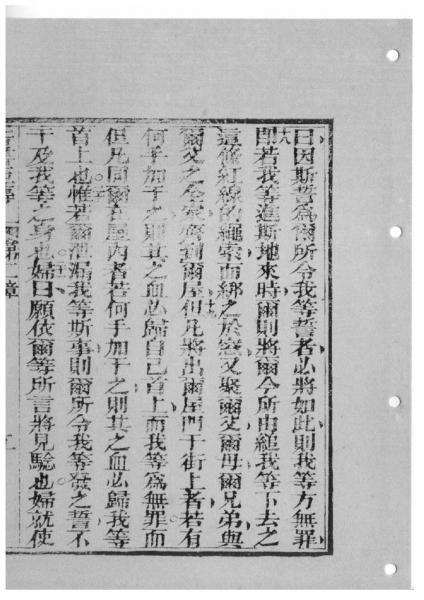 曰因斯誓為爾所令我等誓者必將如此則我等方無罪
十八即若我等進斯地來時爾則將爾今所由縋我等下去之
這條紅線的繩索而綁之於窓又聚爾父爾母爾兄弟與
爾父之全家齊到爾屋十九但凡將出爾屋門于街上者若有
何手加于之則其之血必歸自己首上而我等為無罪而
但凡同爾在屋內者若何手加于之則其之血必歸我等
首上也惟若爾泄漏我等斯事則爾所令我等發之誓不
干及我等之身也婦曰願依爾等所言將見驗也婦就使
第二章